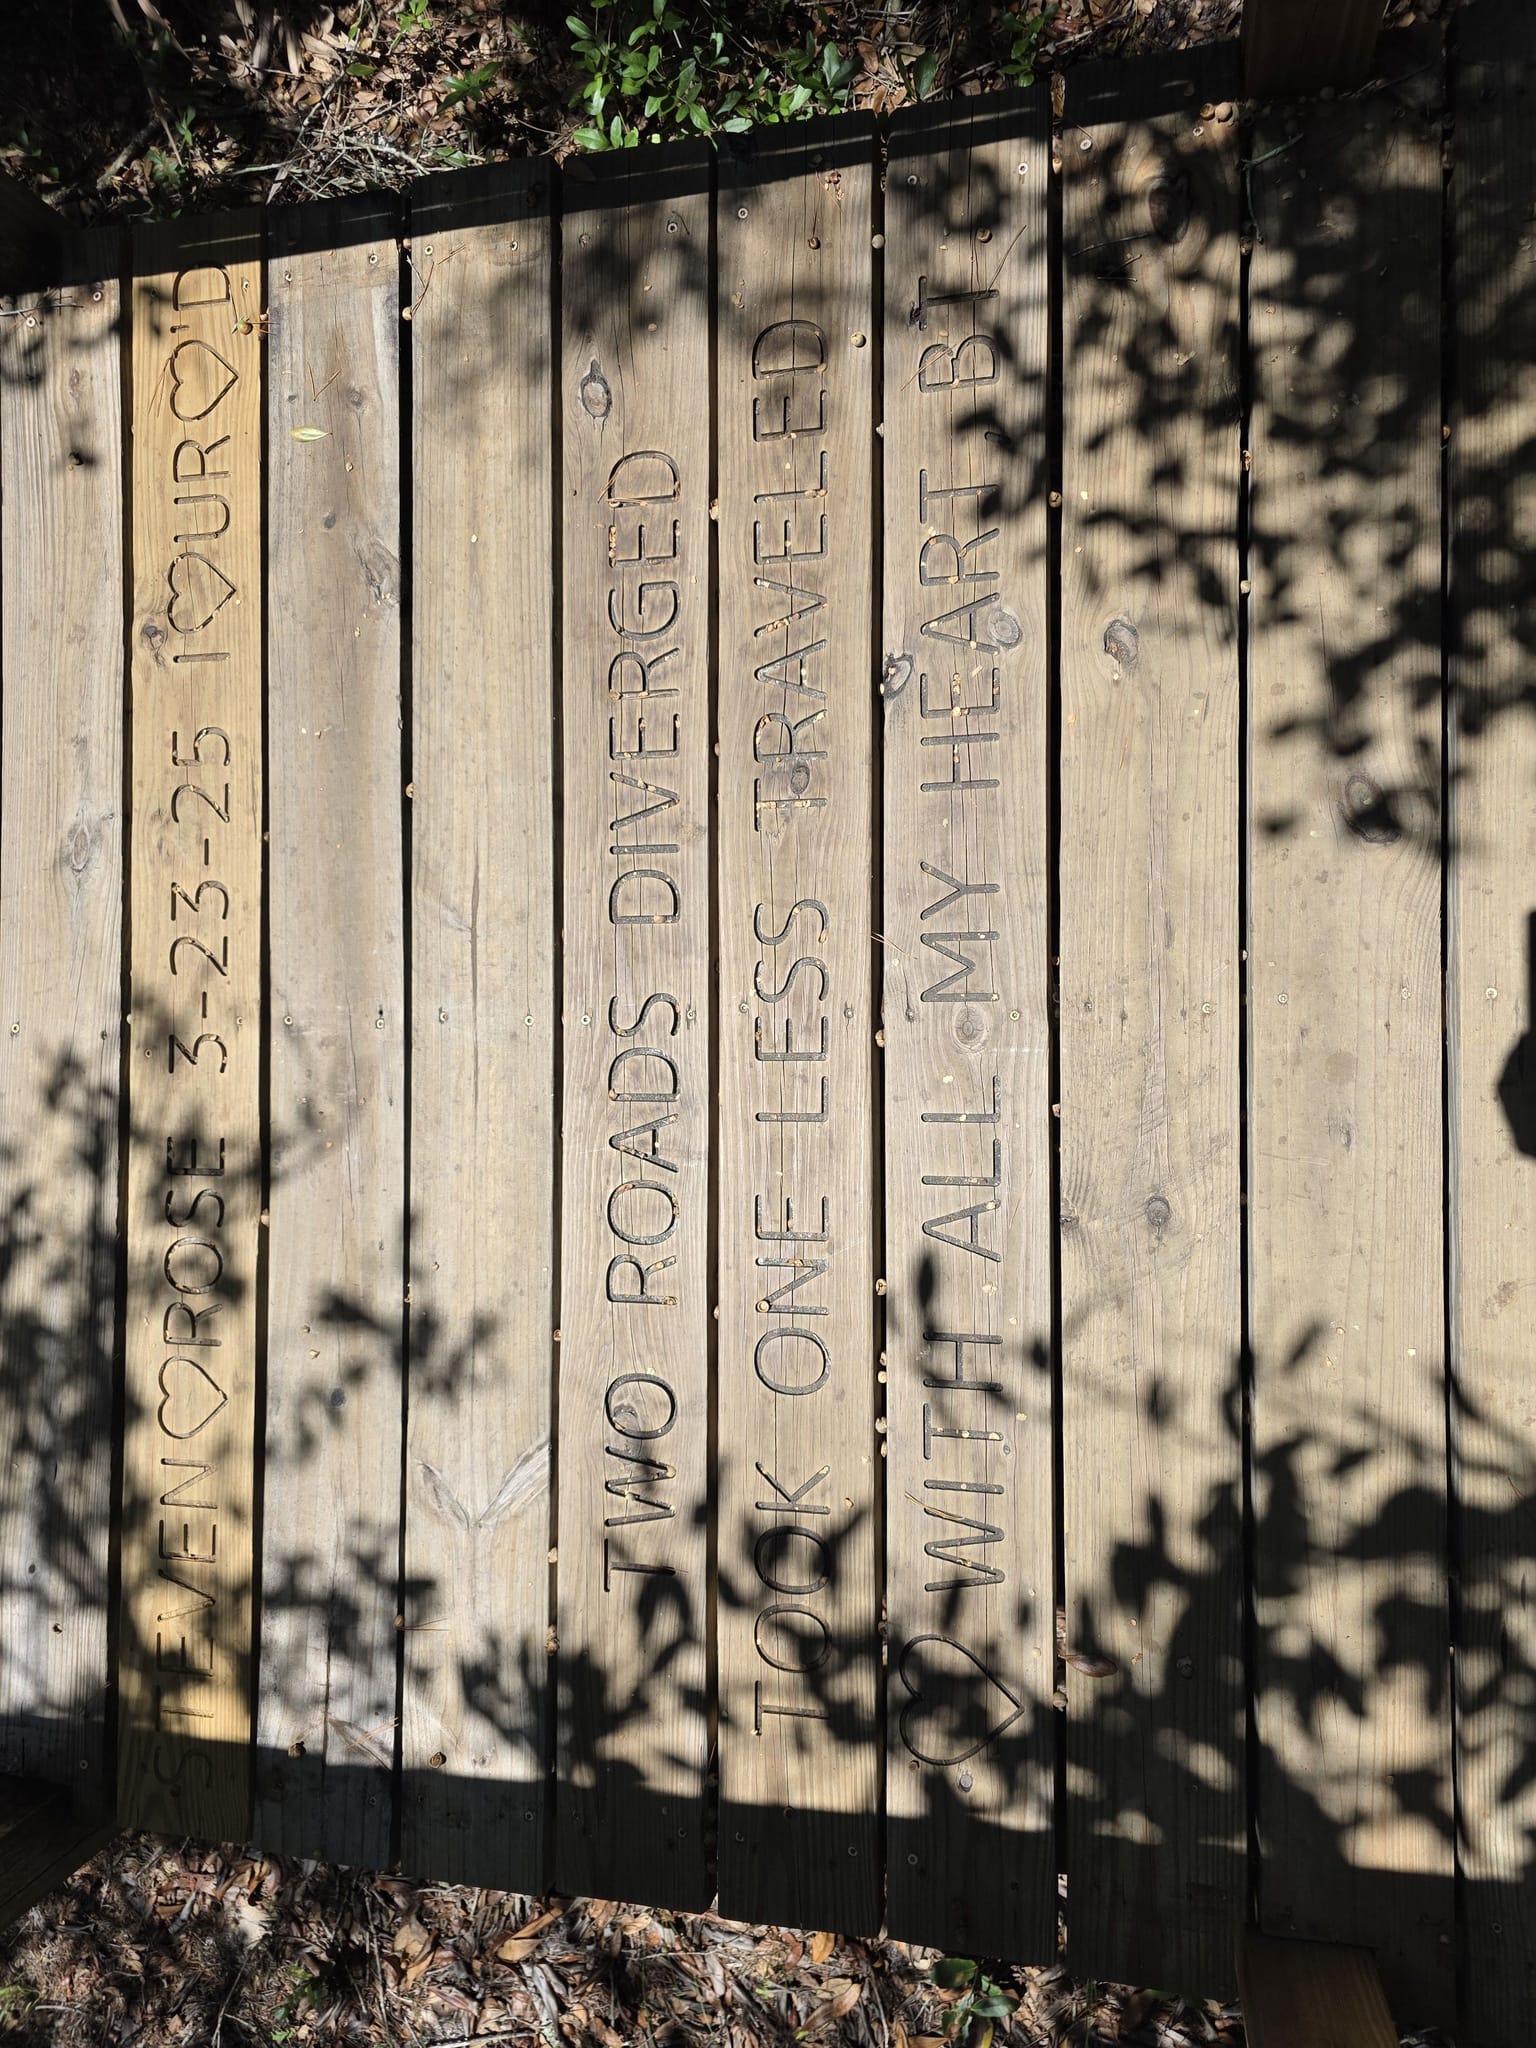 STEVEN ♡ ROSE 3-23-25 I ♡ UR ♡'D
TWO ROADS DIVERGED
TOOK ONE LESS TRAVELED
♡ WITH ALL MY HEART, BT